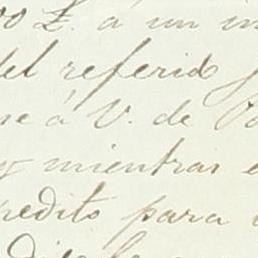 00 £. á un in
del referido
se á V. de
y mientras
redito para